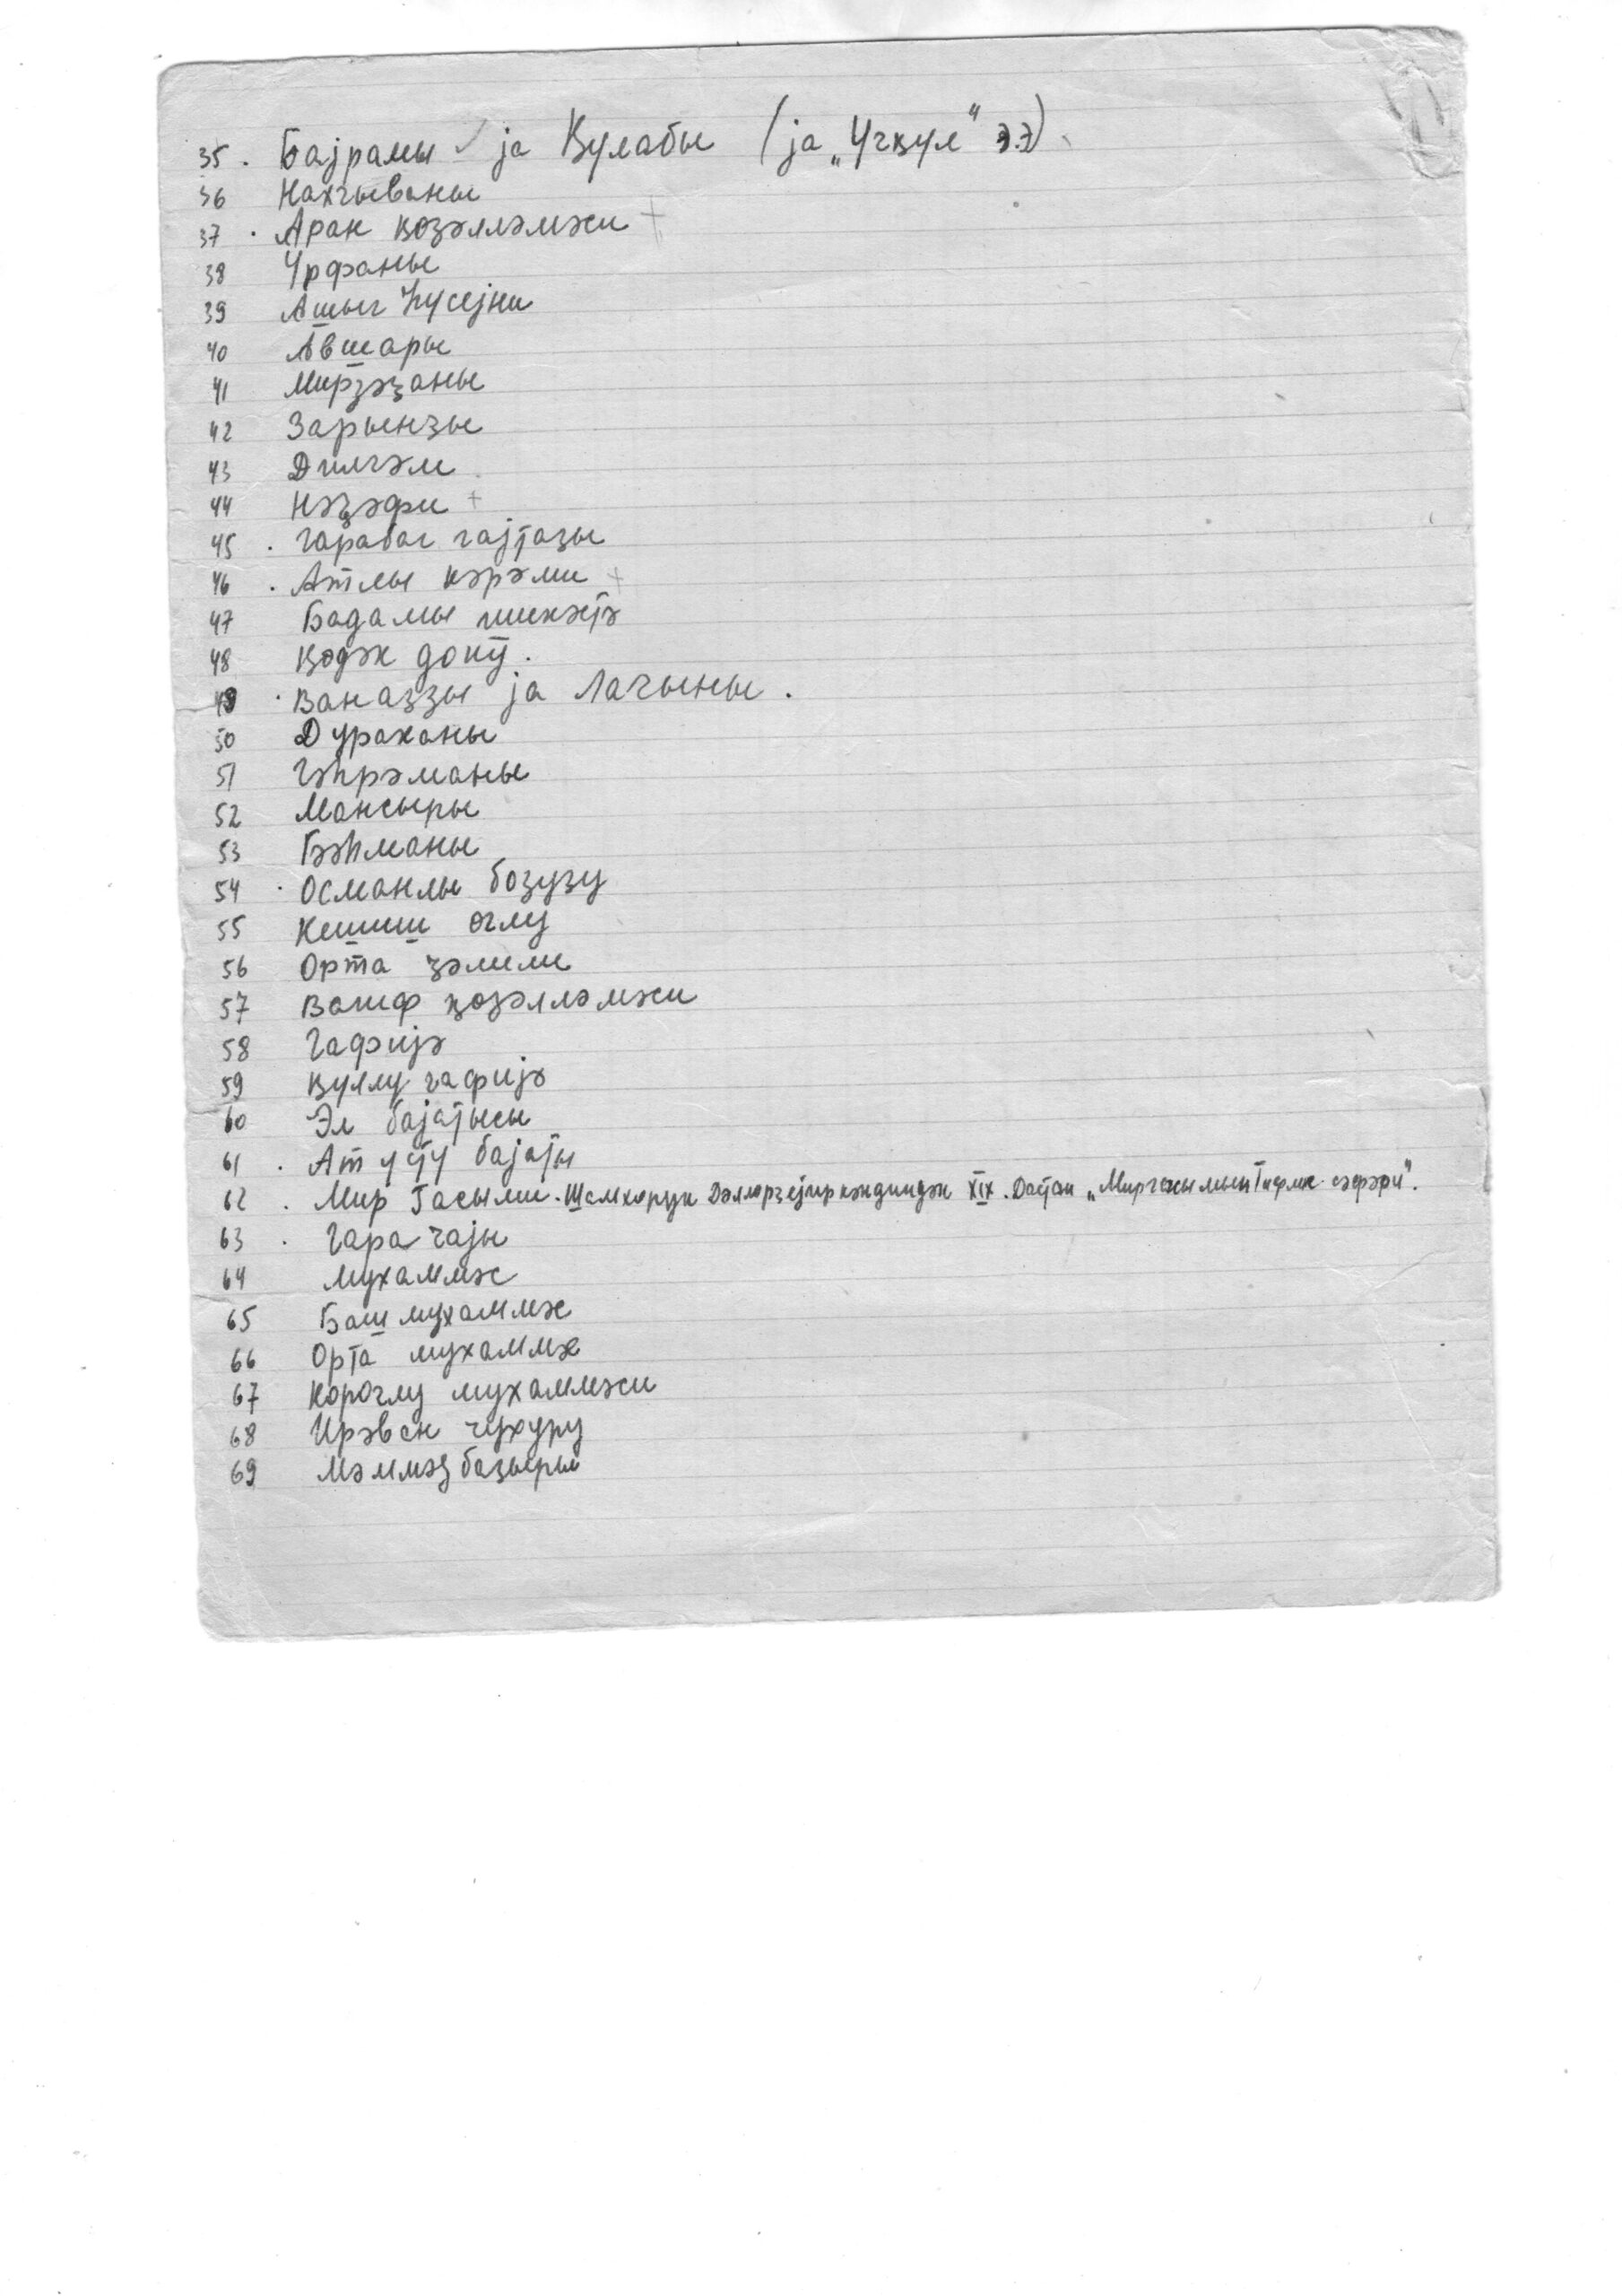 35. Бајрамы ја Ҝулабы (ја „Үчҝүл" Ә.Ә)
36 Нахчываны
37. Аран ҝөзәлләмәси
38 Урфаны
39 Ашыг Һүсејни
40 Авшары
41 Мирзәҹаны
42 Зарынҹы
43 Дилгәм
44 Нәҹәфи
45. Гарабағ гајтағы
46. Атлы кәрәми
47 Бадамы шикәстә
48 Ҝөдәк дону.
49. Ванағзы ја Лачыны.
50 Дураханы
51 Гәһрәманы
52 Мансыры
53 Бәһманы
54. Османлы бозуғу
55 Кешиш оғлу
56 Орта ҹәлили
57 Вагиф ҝөзәлләмәси
58 Гафијә
59 Ҝүллү гафијә
60 Ел бајатысы
61. Ат үстү бајаты
62. Мир Гасыми. Шамхорун Дәлләрҹејир кәндиндән XIX. Дастан „Миргасымын Тифлис сәфәри".
63. Гара чајы
64 Мухаммәс
65 Баш мухаммәс
66 Орта мухаммәс
67 Короғлу мухаммәси
68 Ирәван чухуру
69 Мәммәдбағыры